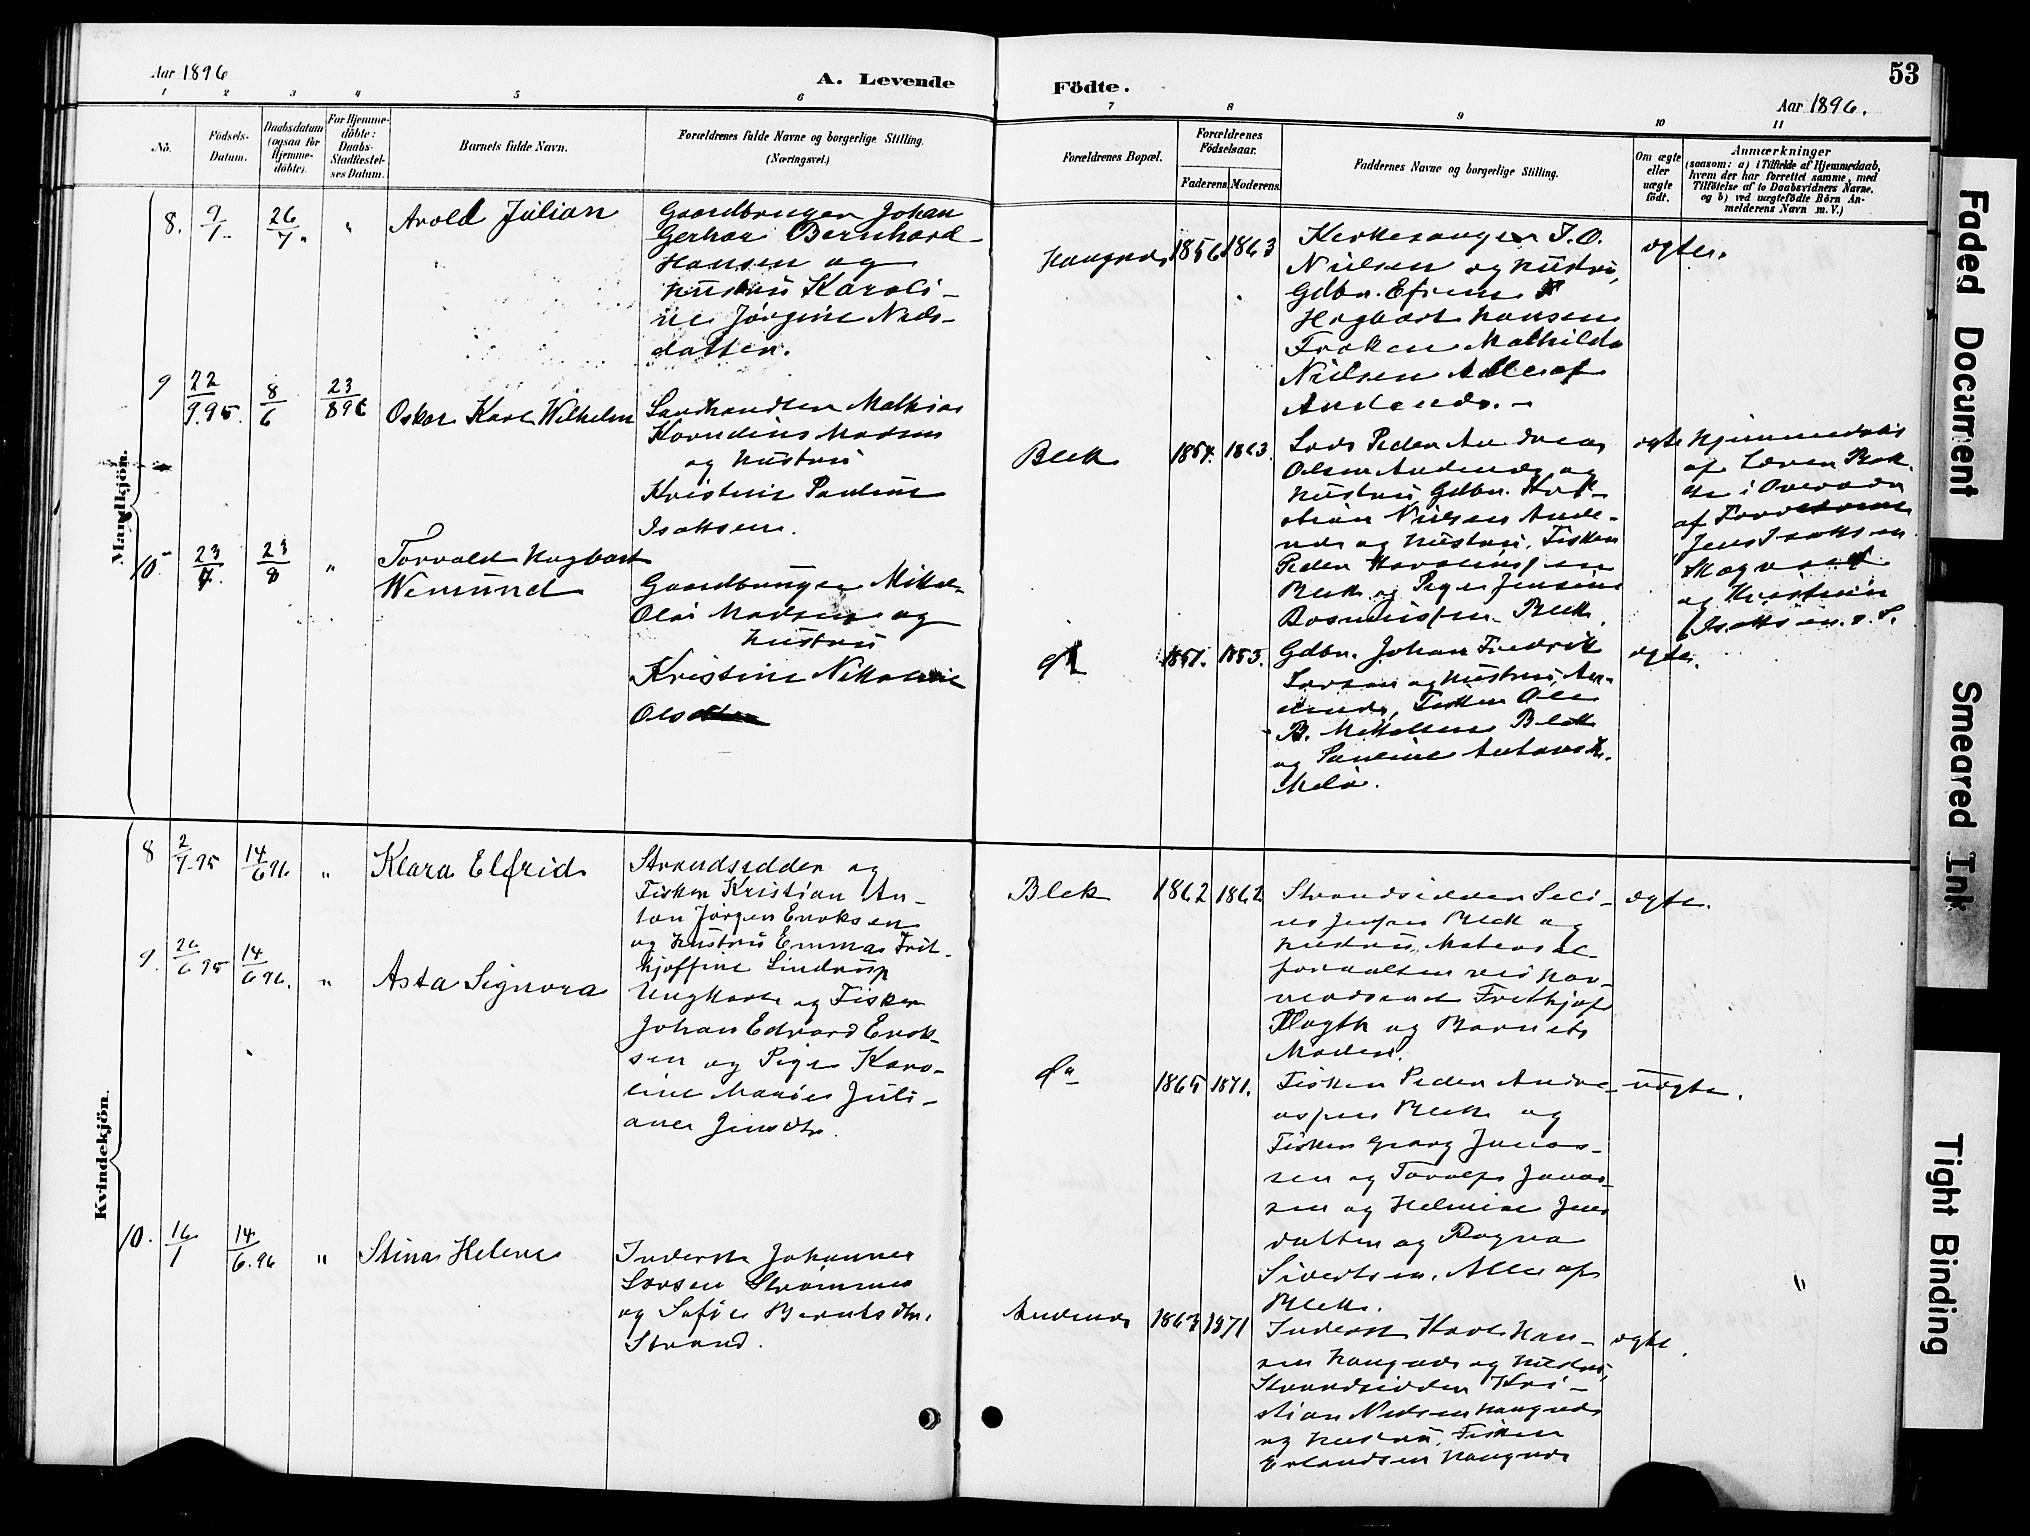 Aar 1896
A. Levende
Födte.
53
Aar 1896.
1 2 3 4 5 6 7 8 9 10 11
Nö.
Födsels-
Datum.
Daabsdatum
(ogsaa for
Hjemme-
döbte).
For Hjemme-
döbte:
Daabs-
Stadfæstel-
ses Datum.
Barnets fulde Navn.
Forældrenes fulde Navne og borgerlige Stilling.
(Næringsvei.)
Forældrenes Bopæl.
Forældrenes
Födselsaar.
Faderens. Moderens.
Faddernes Navne og borgerlige Stilling.
Om ægte
eller
uægte
födt.
Anmærkninger
(saasom: a) i Tilfælde af Hjemmedaab,
hvem der har forrettet samme, med
Tilföielse af to Daabsvidners Navne,
og b) ved uægtefödte Börn An-
melderens Navn m. V.)
Mandkjön.
8. 9/1 26/7 "
Arold Julian
Gaardbruger Johan
Gerhar Bernhard
Hansen og
Hustru Karoli-
ne Jørgine Nils-
datter.
Haugnes 1856 1863
Kirkesanger J. O.
Nielsen og Hustru,
Gdbr. Efrem
Hagbart Hansen
Frøken Mathilde
Nielsen Alle af
Andenes.
ægte.
9 22/9.95 8/6 23/896
Oskar Karl Wilhelm
Landhandler Mathias
Kornelius Madsen
og Hustru
Kristine Pauline
Isaksen.
Bleik 1854. 1863.
Lods Peder Andreas
Olsen Andenes og
Hustru, Gdbr. Kri-
stian Nielsen Ande-
nes og Hustru, Fisker
Peder
Bleik og Pige Jensine
Rasmussen Bleik.
ægte
Hjemmedøbt
af Lærer
i
af
Jens Isaksen
og Kristine
Isaksen. s. S.
10 23/7. 23/8 "
Torvald Hagbart
Wemund
Gaardbruger Mikal
Olai Madsen og
Hustru
Kristine Nikoline
Ols
1851. 1853.
Gdbr. Johan Fredrik
Larsen og Hustru An-
denes, Fisker Ole
B. Mikalsen Bleik
og Pauline
Melø.
ægte.
Kvindekjön.
8 2/7.95 14/6 96 "
Klara Elfrid
Strandsidder og
Fisker Kristian An-
ton Jørgen Enoksen
og Hustru Emma Frit-
hjoffine Lindrup
Bleik 1862 1862
Strandsidder Seli-
us Jensen Bleik og
Hustru, Materiale-
forvalter ved Hav-
nevæsenet Frithjof
Flogth og Barnets
Moder.
ægte.
9. 26/6 95 14/6 96. "
Asta Signora
Ungkarl og Fisker
Johan Edvard Enok-
sen og Pige Karo-
line Marie Juli-
ane Jensdtr.
Do 1865 1871.
Fisker Peder Andre-
assen Bleik og
Fisker Georg Jonas-
sen og Toralf Jonas-
sen og Helmine Jens
datter og Ragna
Sivertsen. Alle af
Bleik.
uægte.
10. 16/1 14/6.96 "
Stina Helene
Inderst Johannes
Larsen Strømmes
og Sofie Berntsdtr.
Strand.
Andenes 1863 1871
Inderst Karl Han-
sen Haugnes og Hustru,
Strandsidder Kri-
stian Nilsen Haugnes
og Hustru, Fisker
Erlandsen Haugnes
ægte.
Faded Document
Smeared Ink
Tight Binding